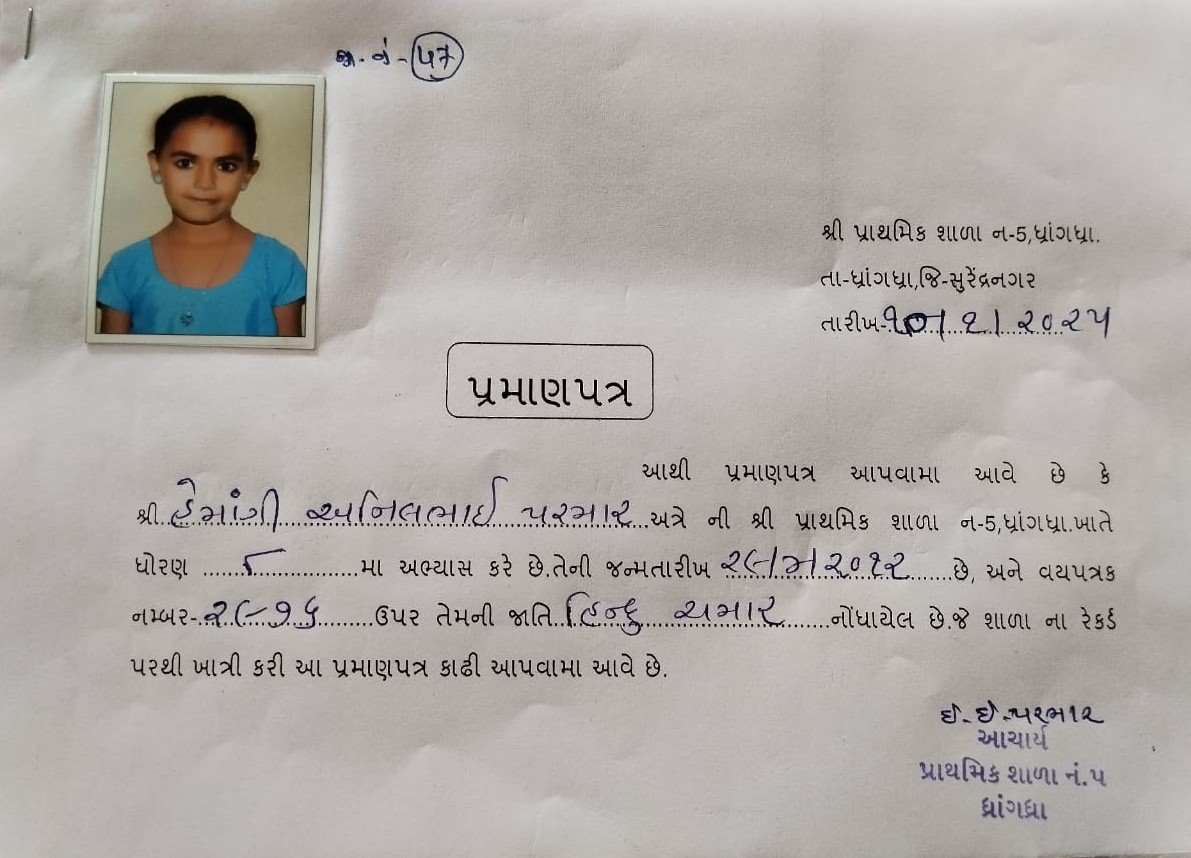 જા. નં- ૫૭
શ્રી પ્રાથમિક શાળા ન-5,ધ્રાંગધ્રા.
તા-ધ્રાંગધ્રા,જિ-સુરેંદ્રનગર
તારીખ-૧૦/૧/૨૦૨૫
પ્રમાણપત્ર
આથી પ્રમાણપત્ર આપવામા આવે છે કે
શ્રી.હેમાંગી અનિલભાઈ પરમાર અત્રે ની શ્રી પ્રાથમિક શાળા ન-5,ધ્રાંગધ્રા.ખાતે
ધોરણ ............મા અભ્યાસ કરે છે.તેની જન્મતારીખ ૨૦૧૨......છે, અને વયપત્રક
નમ્બર-૨૯૭૬........ઉપર તેમની જાતિ.હિન્દુ ચમાર........નોંધાયેલ છે.જે શાળા ના રેકર્ડ
પરથી ખાત્રી કરી આ પ્રમાણપત્ર કાઢી આપવામા આવે છે.
ઈ.ઈ.પરમાર
આચાર્ય
પ્રાથમિક શાળા નં.૫
ધ્રાંગધ્રા